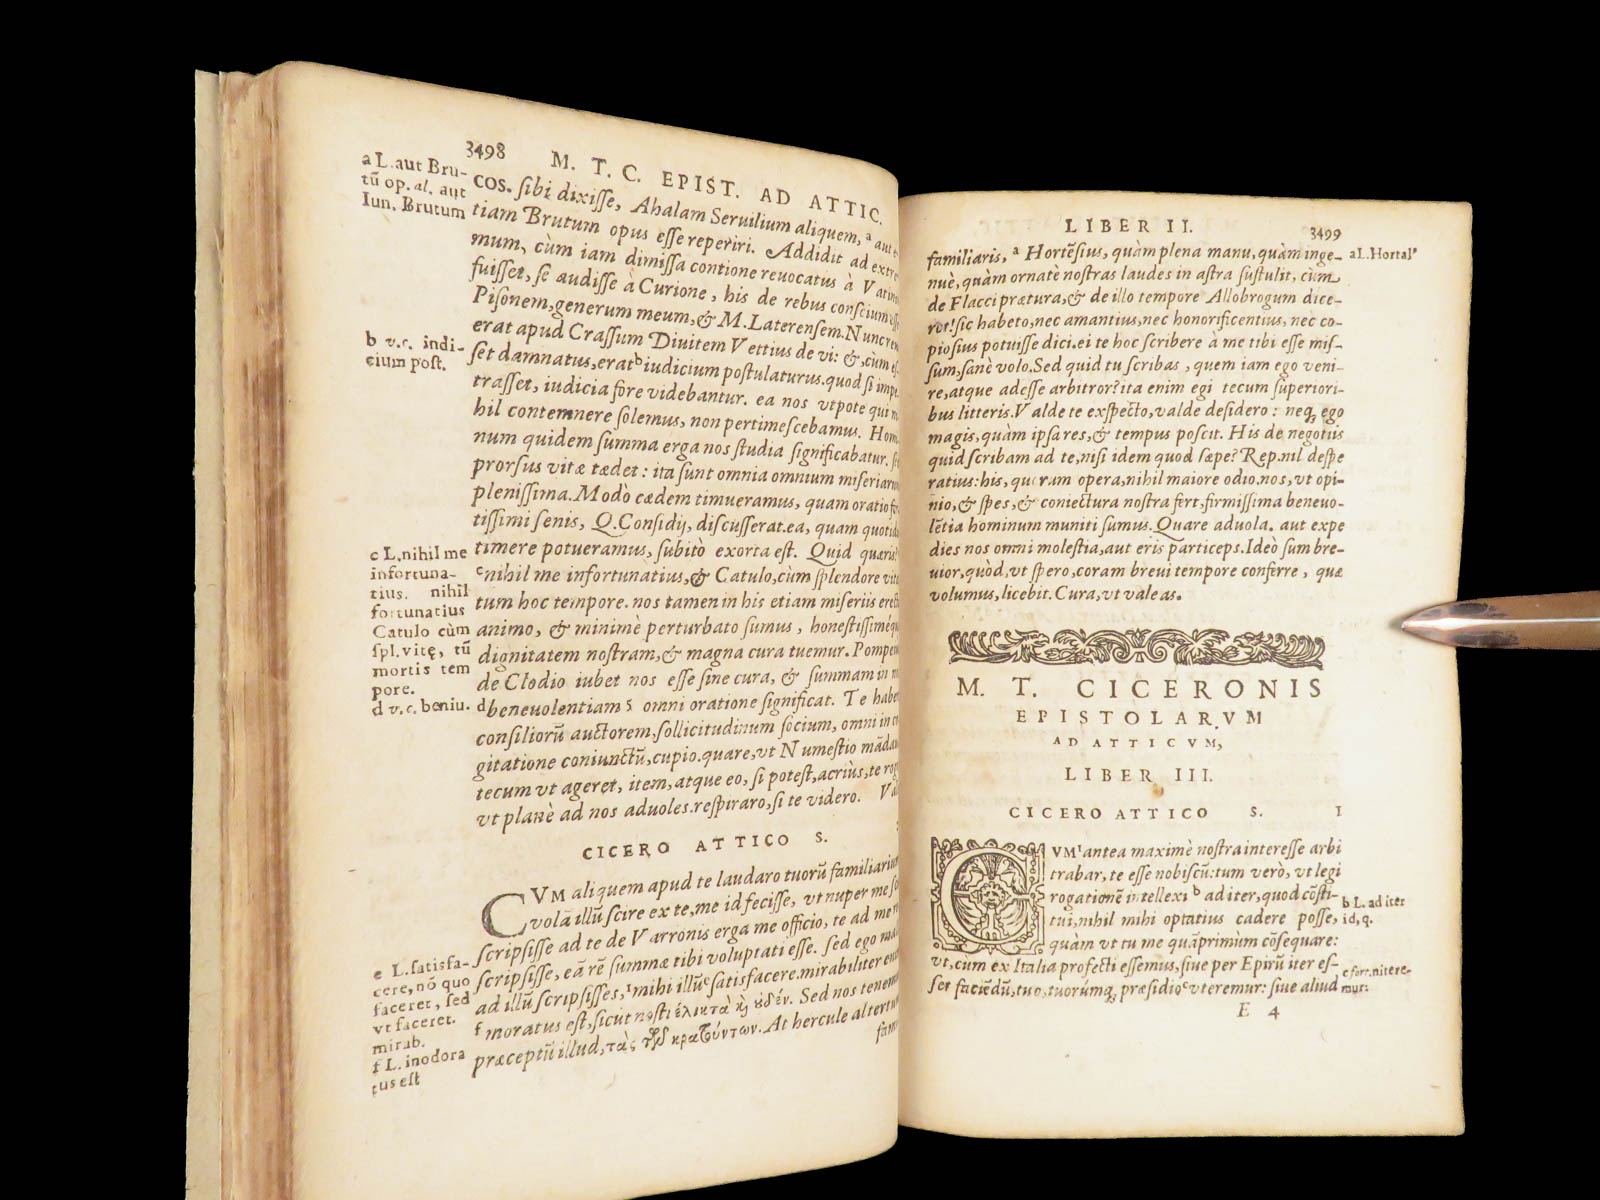 3498 M. T. C. EPIST. AD ATTIC.
a L. aut Bru-
tũ op. al. aut
Iun. Brutum
cos. sibi dixiſſe, Ahalam Seruilium aliquem, ᵃ aut
tiam Brutum opus eſſe reperiri. Addidit ad extre
mum, cùm iam dimiſſa contione reuocatus à Vatin
fuiſſet, ſe audiſſe à Curione, his de rebus conſcium eſſe
Piſonem, generum meum, & M. Laterenſem. Nunc reu
erat apud Craſſum Diuitem Vettius de vi: &, cùm eſ-
b v.c. indi-
cium poſt.
ſet damnatus, erat ᵇ iudicium poſtulaturus. quod ſi impe
traſſet, iudicia fore videbantur. ea nos vtpote qui ni
hil contemnere ſolemus, non pertimeſcebamus. Hom
num quidem ſumma erga nos ſtudia ſignificabatur. ſi
prorſus vitæ tædet: ita ſunt omnia omnium miſeriarum
pleniſſima. Modò cædem timueramus, quam oratio for
tiſſimi ſenis, Q. Conſidij, diſcuſſerat. ea, quam quotid
timere potueramus, ſubitò exorta eſt. Quid quæris?
c L. nihil me
infortuna-
tius. nihil
fortunatius
Catulo cùm
ſpl. vitę, tũ
mortis tem
pore.
d v.c. beniu.
ᶜnihil me infortunatius, & Catulo, cùm ſplendore vitæ
tum hoc tempore. nos tamen in his etiam miſeriis erecto
animo, & minimè perturbato ſumus, honeſtiſſiméque
dignitatem noſtram, & magna cura tuemur. Pompeiu
de Clodio iubet nos eſſe ſine cura, & ſummam in n
ᵈbeneuolentiam omni oratione ſignificat. Te habe
conſiliorũ auctorem, ſollicitudinum ſocium, omni in co
gitatione coniunctũ, cupio. quare, vt Numeſtio mãdau
tecum vt ageret, item, atque eo, ſi poteſt, acriùs, te rog
vt planè ad nos aduoles. reſpiraro, ſi te videro. Val
CICERO ATTICO S.
CVM aliquem apud te laudaro tuorũ familiarium
volã illũ ſcire ex te, me id feciſſe, vt nuper me ſci
ſcripſiſſe ad te de Varronis erga me officio, te ad me re
e L. ſatisfa-
cere, nõ quo
faceret, ſed
vt faceret.
mirab.
f L. inodora
tus eſt
ſcripſiſſe, eã rẽ ſummæ tibi voluptati eſſe. ſed ego mal
ad illũ ſcripſiſſes, mihi illũ ᵉ ſatisfacere. mirabiliter enim
ᶠ moratus eſt, ſicut noſti ἑλικτὰ ϗ ȣ̓δέν. Sed nos tenem
præceptũ illud, τὰς τῶν κρατȣ́ντων. At hercule alter tuu
fami
LIBER II. 3499
familiaris, ᵃ Hortẽſius, quàm plena manu, quàm inge-
a L. Hortal⁹
nuè, quàm ornatè noſtras laudes in aſtra ſuſtulit, cùm
de Flacci prætura, & de illo tempore Allobrogum dice-
ret! ſic habeto, nec amantius, nec honorificentius, nec co-
pioſius potuiſſe dici. ei te hoc ſcribere à me tibi eſſe miſ-
ſum, ſanè volo. Sed quid tu ſcribas, quem iam ego veni-
re, atque adeſſe arbitror? ita enim egi tecum ſuperiori-
bus litteris. Valde te exſpecto, valde deſidero: neq; ego
magis, quàm ipſa res, & tempus poſcit. His de negotiis
quid ſcribam ad te, niſi idem quod ſæpe? Rep. nil deſpe
ratius: his, quorum opera, nihil maiore odio. nos, vt opi-
nio, & ſpes, & coniectura noſtra fert, firmiſſima beneuo-
lẽtia hominum muniti ſumus. Quare aduola. aut expe
dies nos omni moleſtia, aut eris particeps. Ideò ſum bre-
uior, quòd, vt ſpero, coram breui tempore conferre, quæ
volumus, licebit. Cura, vt valeas.
M. T. CICERONIS
EPISTOLARVM
AD ATTICVM,
LIBER III.
CICERO ATTICO S. I
CVM antea maximè noſtra intereſſe arbi
trabar, te eſſe nobiſcũ: tum verò, vt legi
rogationẽ intellexi ᵇ ad iter, quod cõſti-
b L. ad iter
id, q.
tui, nihil mihi optatius cadere poſſe,
quàm vt tu me quãprimùm cõſequare:
vt, cum ex Italia profecti eſſemus, ſiue per Epirũ iter eſ-
ſet faciẽdũ, tuo, tuorũmq; præſidio ᶜ vteremur: ſiue aliud
c fort. nitere-
mur:
E 4